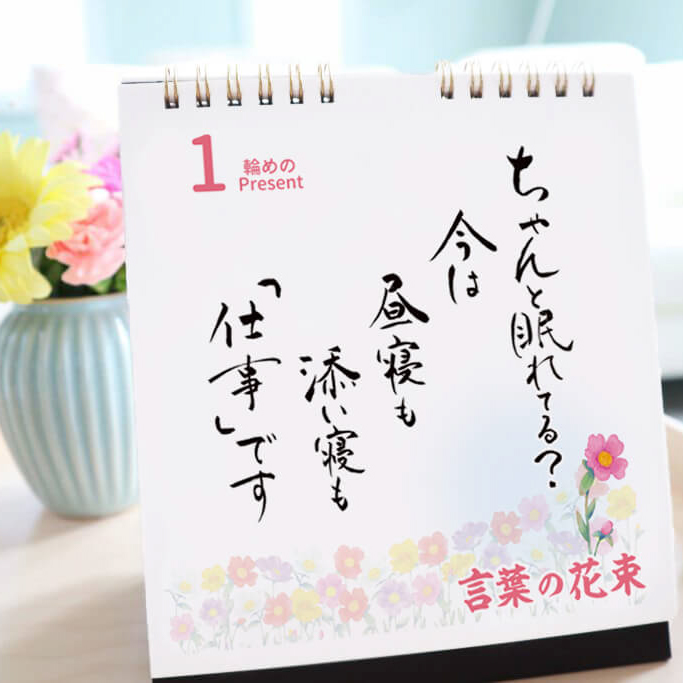 1
輪めの
Present
ちゃんと眠れてる?
今は
昼寝も
添い寝も
「仕事」です
言葉の花束